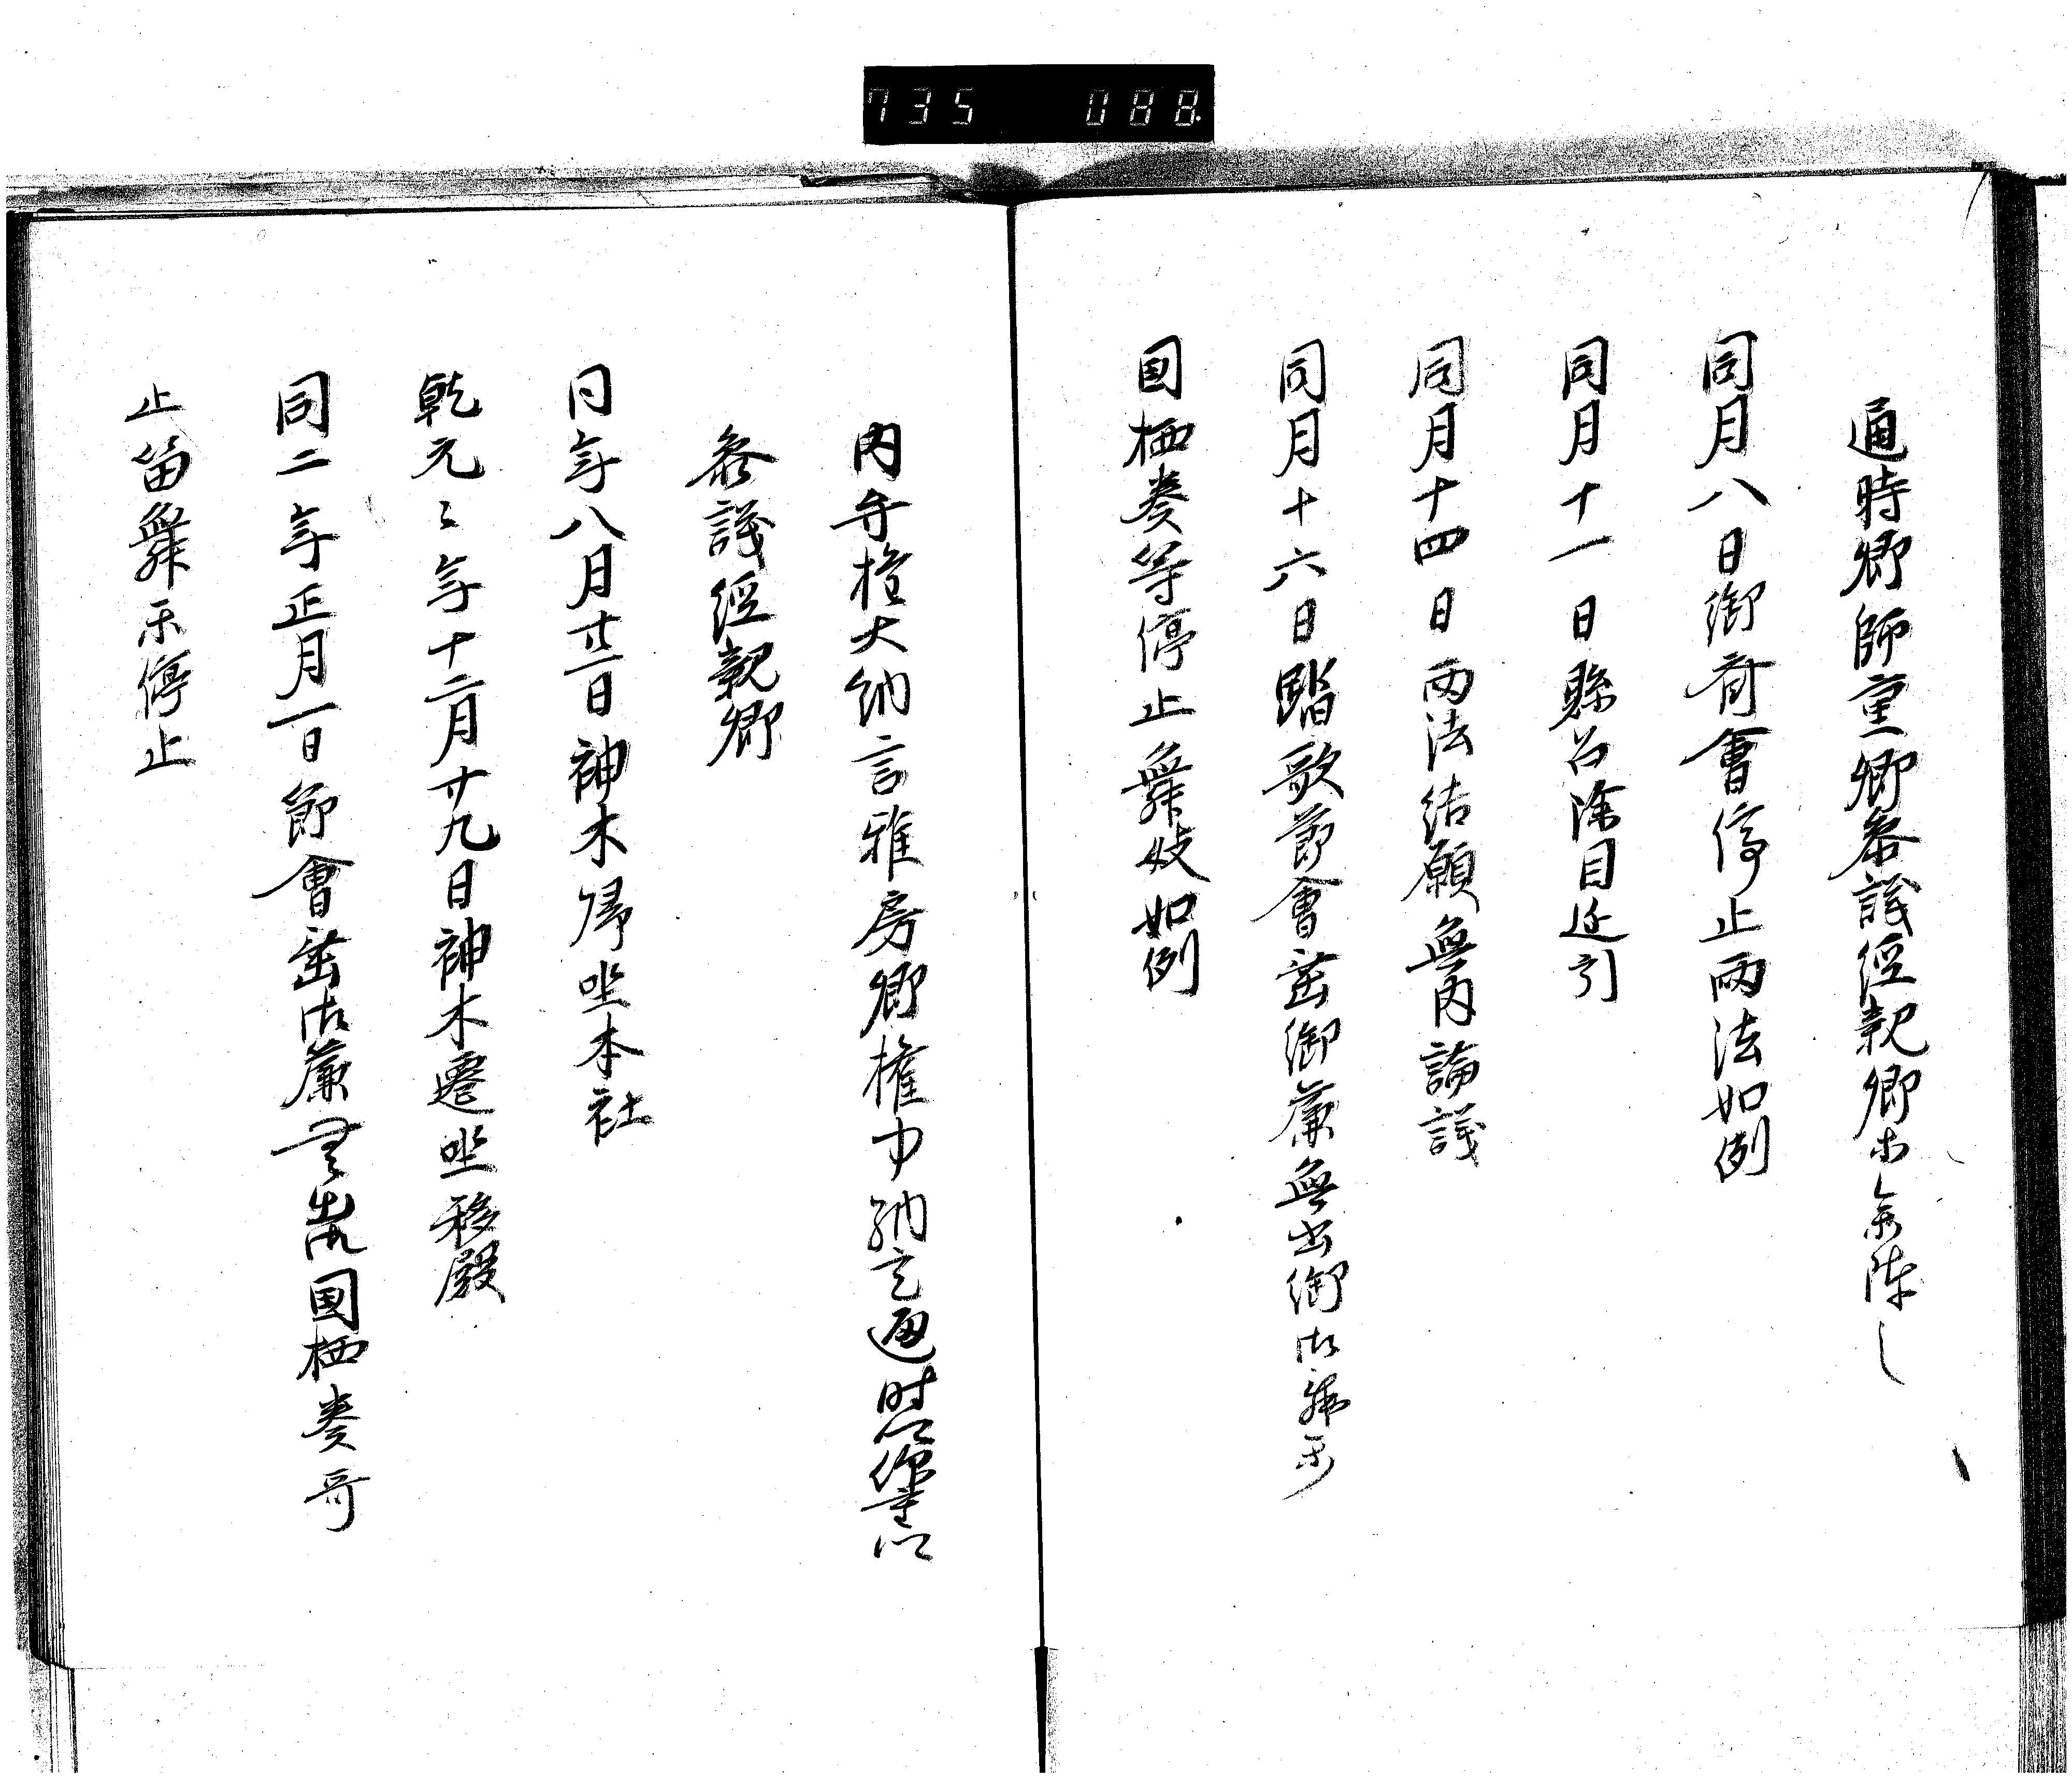 735 088
通時卿師重卿参議経親卿等参陣し
同月八日御斎會停止両法如例
同月十一日縣召除目延引
同月十四日両法結願無内論議
同月十六日踏歌節會垂御簾無出御
國栖奏等停止舞妓如例
内弁権大納言雅房卿権中納言通時卿師重卿
参議経親卿
同年八月廿一日神木帰坐本社
乾元々年十二月廿九日神木遷坐移殿
同二年正月一日節會垂御簾無出御國栖奏哥
止笛舞楽停止